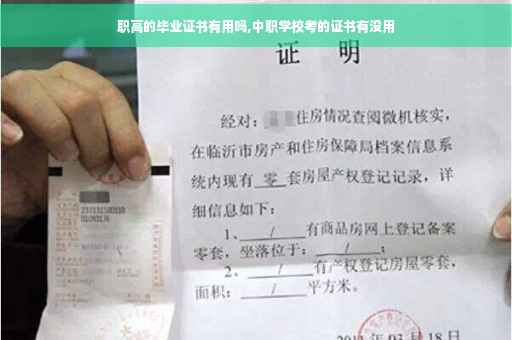 职高的毕业证书有用吗,中职学校考的证书有没用
证 明
经对：住房情况查阅微机核实，
在临沂市房产和住房保障局档案信息系
统内现有 零 套房屋产权登记记录，详
细信息如下：
1、 / 有商品房网上登记备案
零套，坐落位于： / ；
2、 / 有产权登记房屋零套，
面积： / 平方米。
03月18日